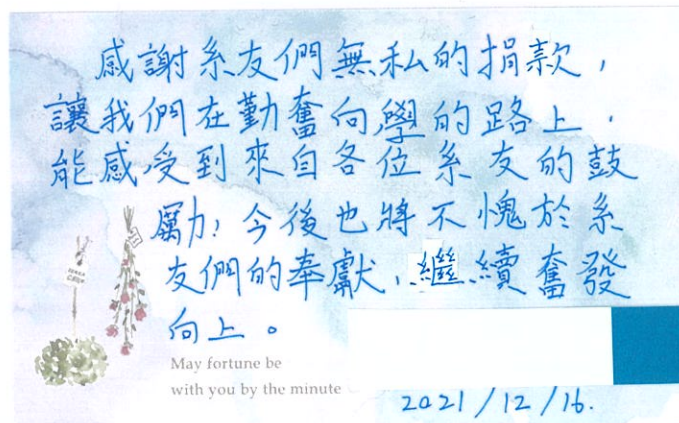 感謝系友們無私的捐款，
讓我們在勤奮向學的路上，
能感受到來自各位系友的鼓
勵！今後也將不愧於系
友們的奉獻，繼續奮發
向上。
May fortune be
with you by the minute
2021/12/16.